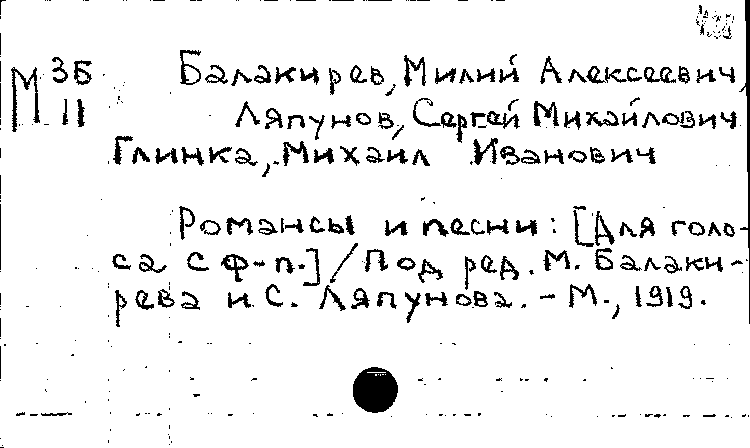 М 3Б
11
Балакирев, Милий Алексеевич,
Ляпунов, Сергей Михайлович
Глинка, Михаил Иванович
Романсы и песни: [Для голо-
са с ф-п.] / Под ред. М. Балаки-
рева и С. Ляпунова. - М., 1919.